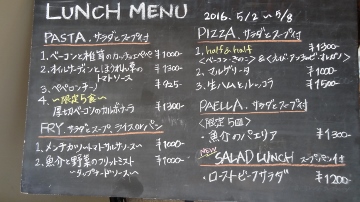 LUNCH MENU
PASTA. サラダとスープ付
1. ベーコンと椎茸のカーチョエペペ ¥1000-
2. オイルサーディンとほうれん草の トマトソース ¥1300-
3. ペペロンチーノ ¥925-
4. 〜限定5食〜
厚切ベーコンのカルボナーラ ¥1300-
FRY. サラダとスープ、ライスorパン
1. メンチカツ トマトサルサソース〜 ¥1000-
2. 魚介と野菜のフリットミスト ¥1000-
〜タップナードソース〜
2016. 5/2 〜 5/8
PIZZA. サラダ、スープ付
1. half & half ¥1300-
<ベーコン・きのこ>
2. マルゲリータ ¥1000-
3. 生ハムとルッコラ ¥1300-
PAELLA. サラダ、スープ付
<限定5回>
・魚介のパエリア ¥1300-
NEW SALAD LUNCH スープ、パン付
・ローストビーフサラダ ¥1200-